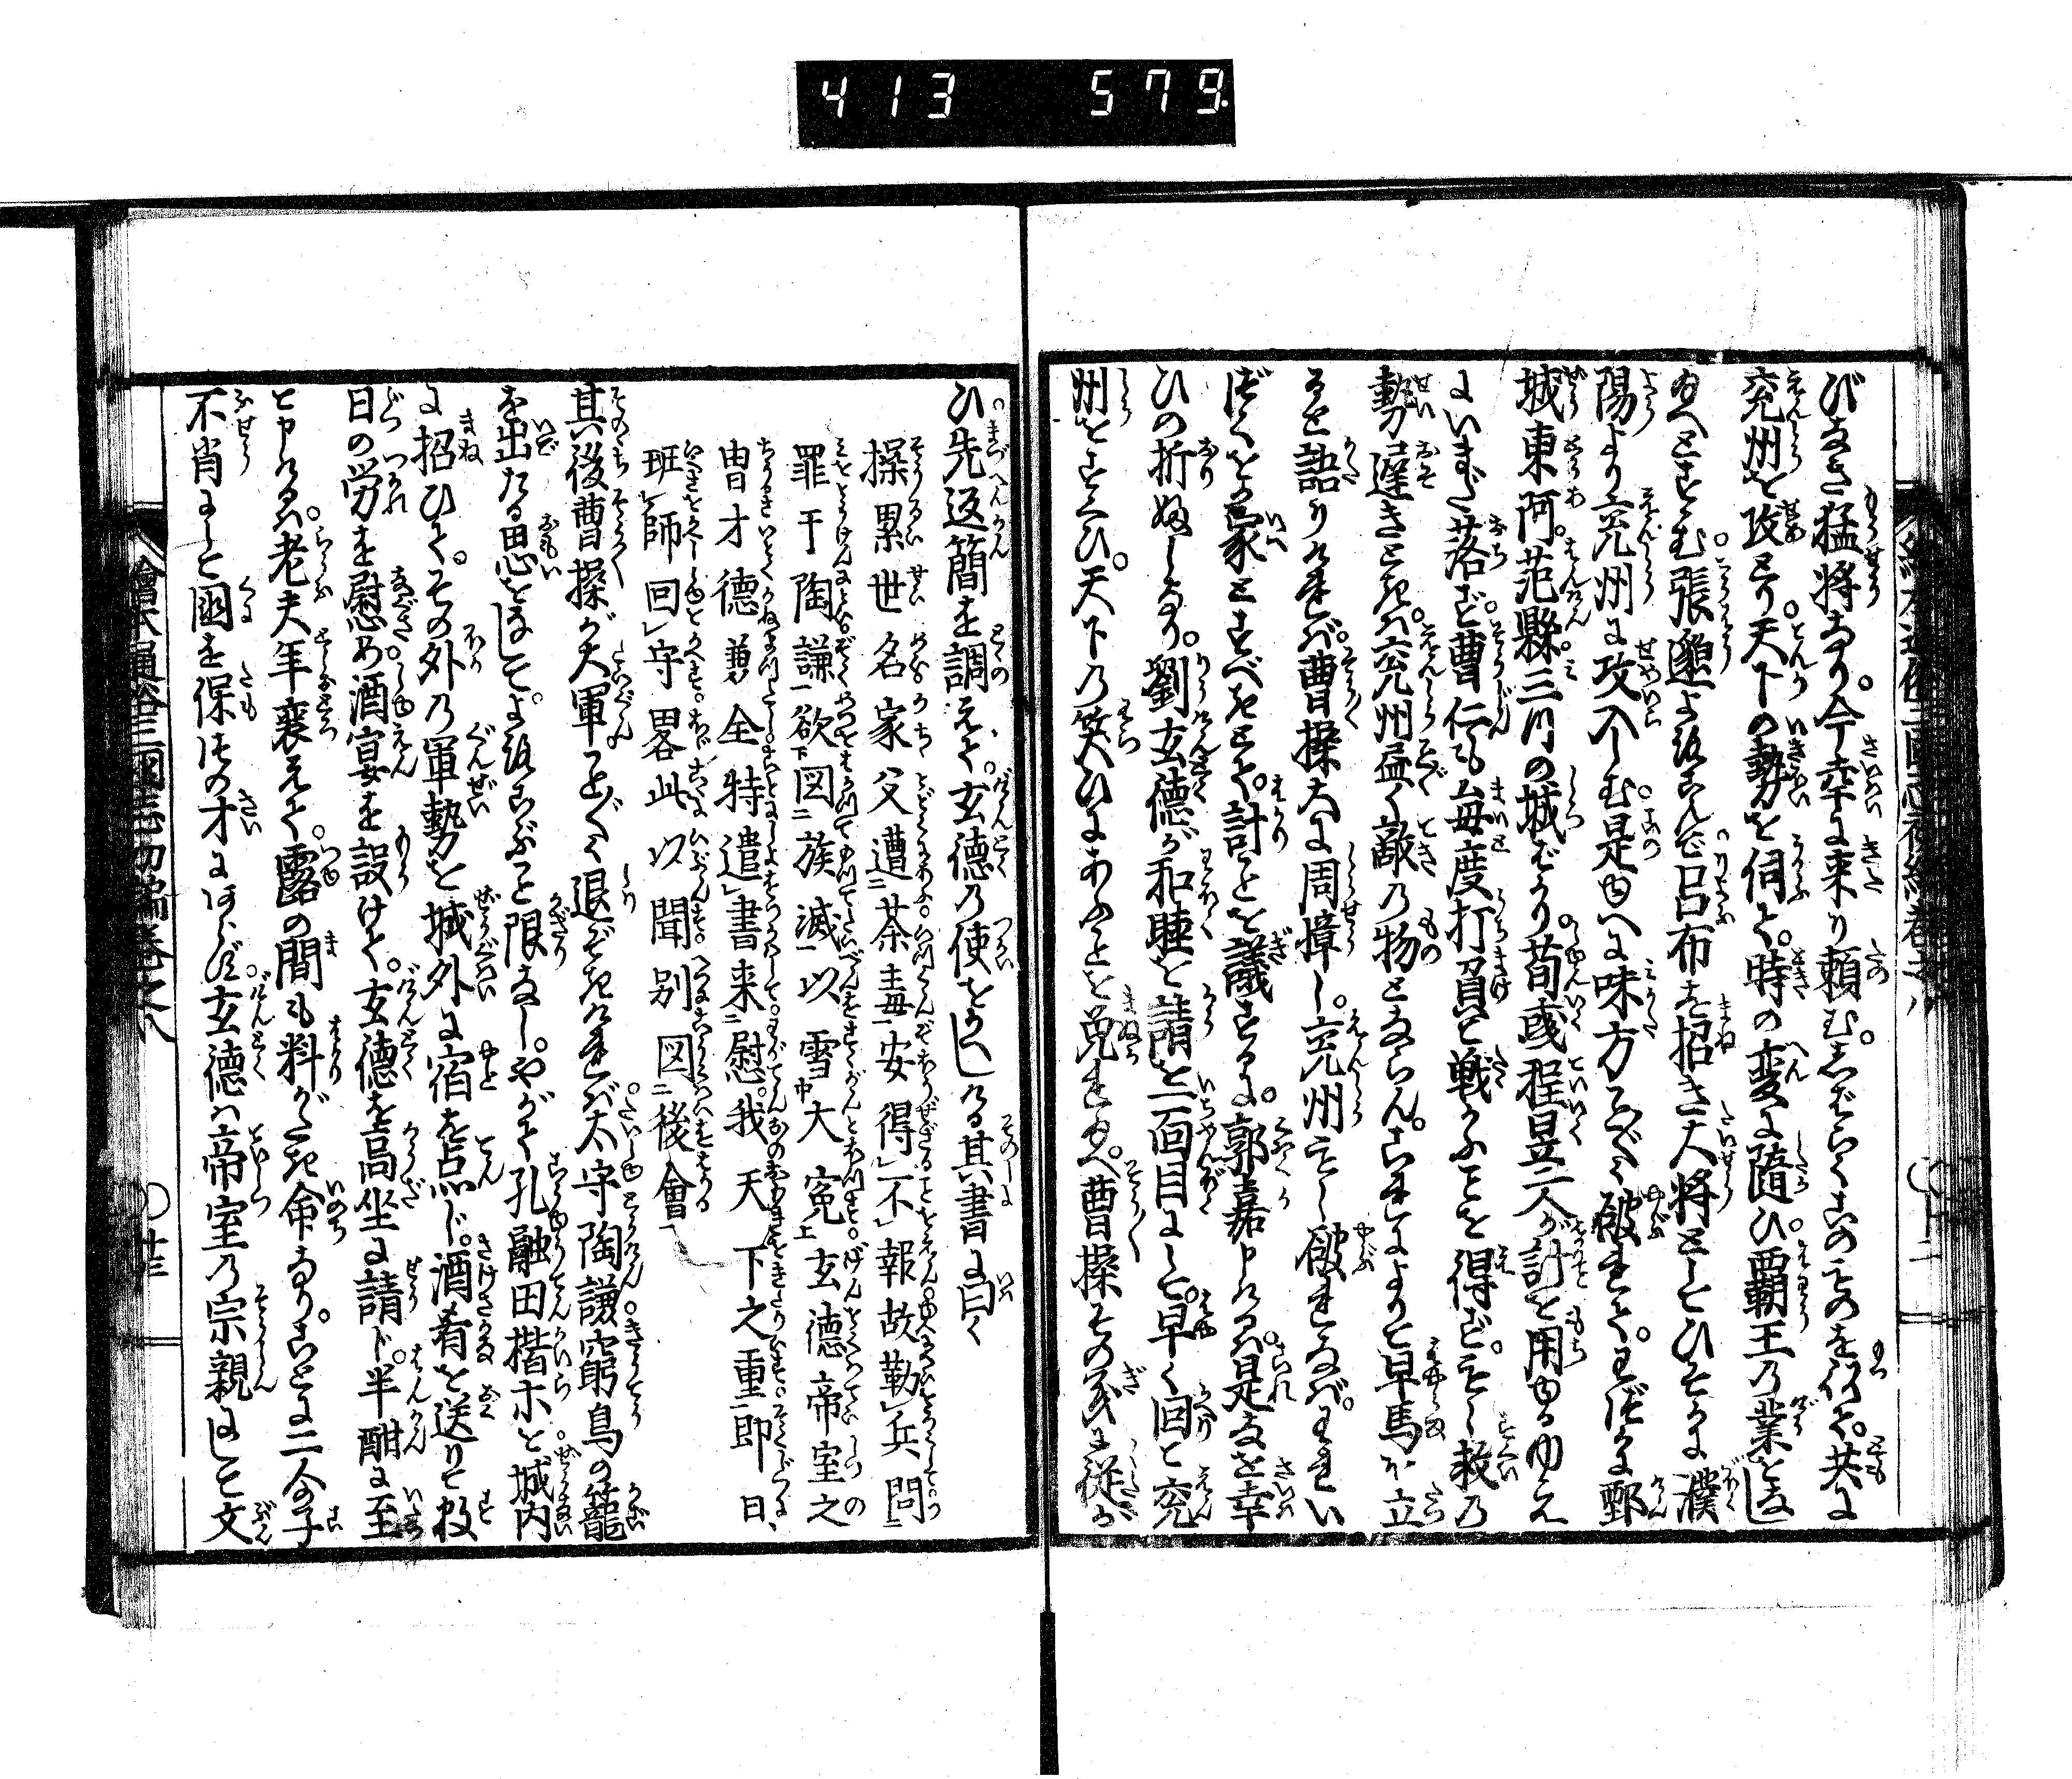 413 579
びなき猛将なり。今幸に来り頼む。しばらくこのものを仮て。共に
兗州を攻とり。天下の勢を伺て。時の変に隨ひ。覇王の業をなし
給へとすゝむ。張邈よろこんで呂布を招き大将としてひそかに濮
陽より兗州に攻入しむ。是ゆへに味方ことごとく破れて。わづかに鄄
城東阿。范縣三所の城ばかり荀彧程昱二人が計を用ゆるゆえ
にいまだ落ず。曹仁も毎度打負て戦ふことを得ず。もし救の
勢遅きときは兗州盡く敵の物とならん。これによりて早馬を立
ると語りければ。曹操大に周章し。兗州もし破れなば。われい
づくを家とすべきとて。計ことを議するに。郭嘉申けるは。是なを幸
ひの折ふしなり。劉玄德が和睦を請を一面目にして。早く回て兗
州をすくひ。天下の笑ひにあふことを免れ給へ。曹操その義に従
ひ。先返簡を調えて。玄德の使をかへしける其書に曰く
操累世名家父遭荼毒安得不報故勒兵問
罪于陶謙欲図族滅以雪大冤玄德帝室之
冑才德兼全特遣書来慰我天下之重即日
班師回守畧此以聞别図後會
其後曹操が大軍。ことごとく退ぞきければ。太守陶謙窮鳥の籠
を出たる思をなして。よろこぶこと限なし。やがて孔融田楷等を城内
に招ひて。その外の軍勢を城外に宿を点じ。酒肴を送りて数
日の労を慰め酒宴を設けて。玄德を高坐に請じ。半酣に至
て申けるは。老夫年衰えて。露の間も料がたき命なり。ことに二人の子
不肖にして國を保つの才にあらず。玄德は帝室の宗親にして文
繪本通俗三國志初編巻之八
〇廿三